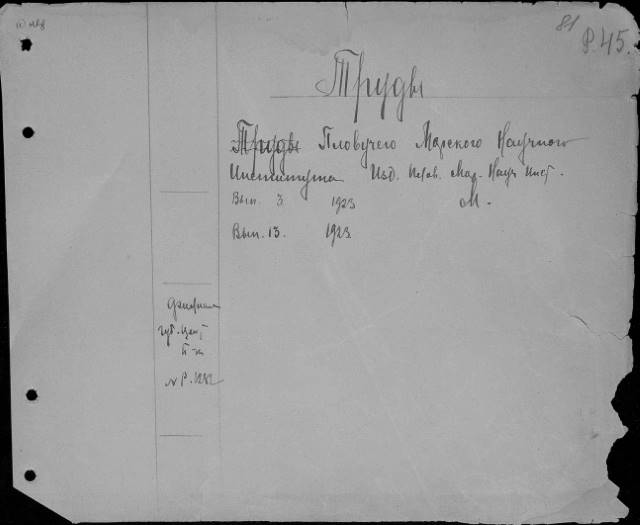 81
Р.45.
Труды
Труды Пловучего Морского Научного
Института Изд. Плов. Мор. Науч Инст.
Вып. 3. 1923 М.
Вып. 13. 1923
губ. цент
б-ка
№ Р. 1282